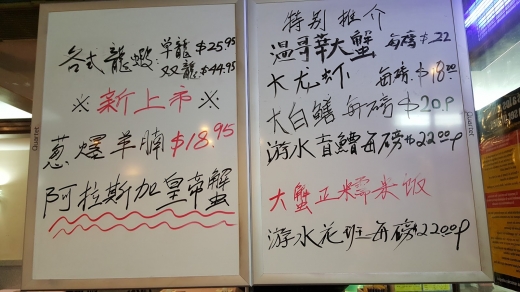 各式龍蝦:單龍$25.95
双龍$44.95
※新上市※
蔥爆羊腩$18.95
阿拉斯加皇帝蟹
Quartet
特别推介
温哥華大蟹 每磅$22
大龙虾 每磅$18.00
大白鱔每磅$20.P
游水盲鰽每磅$22.00P
大蟹正糯米饭
游水花斑每磅$22.00P
Quartet